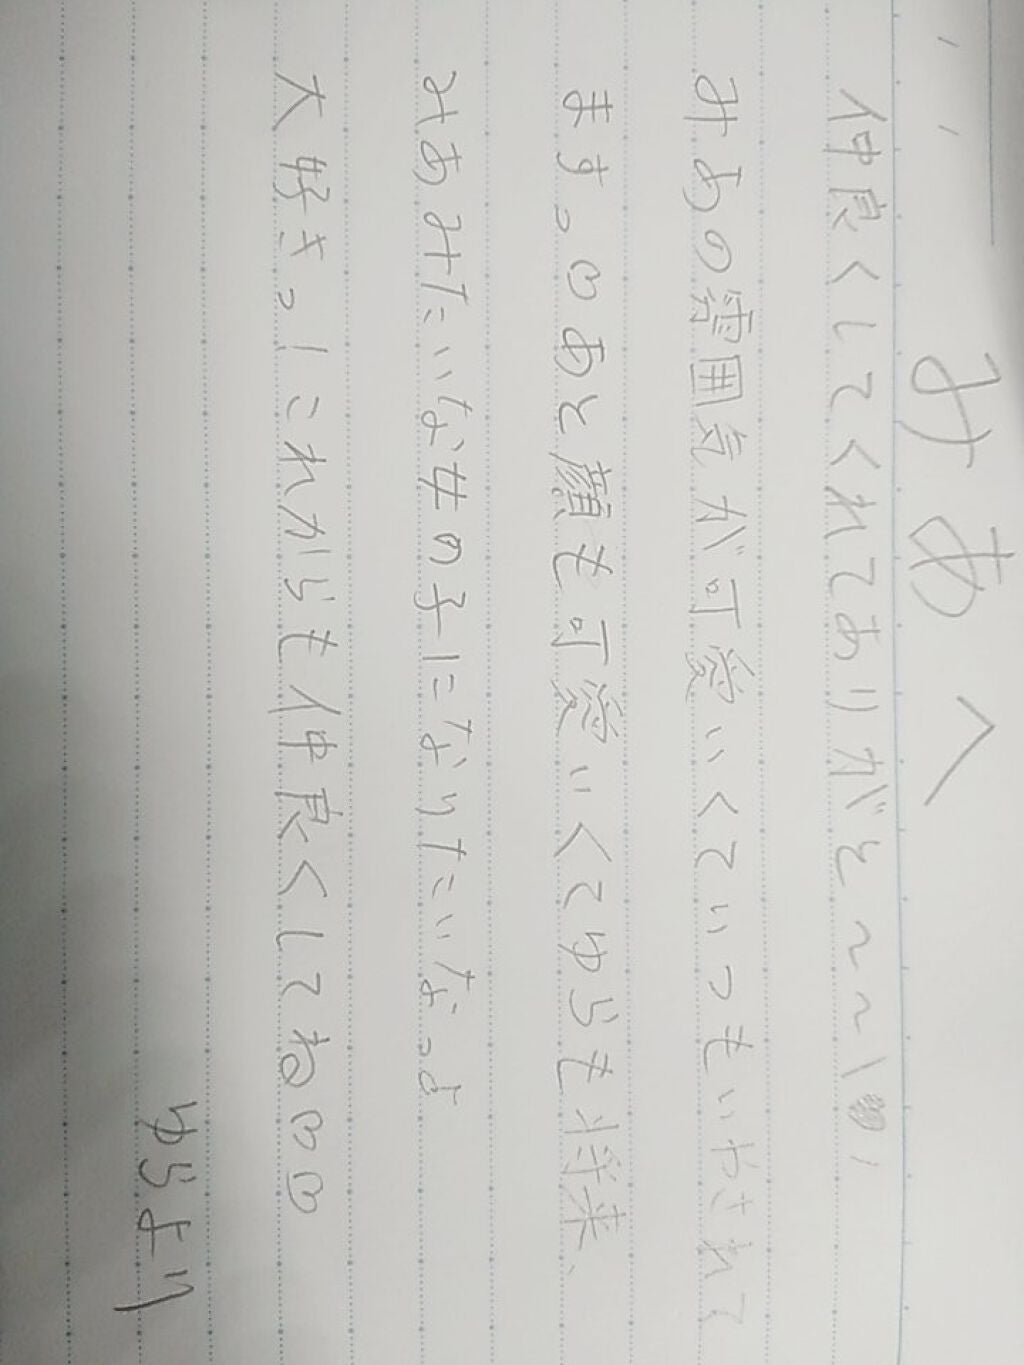 みあへ
仲良くしてくれてありがと〜〜!♡!
みあの雰囲気が可愛いくていつもいやされて
ます。♡あと顔も可愛いくてゆらも将来、
みあみたいな女の子になりたいなっよ
大好きっ!これからも仲良くしてね♡♡
ゆらより